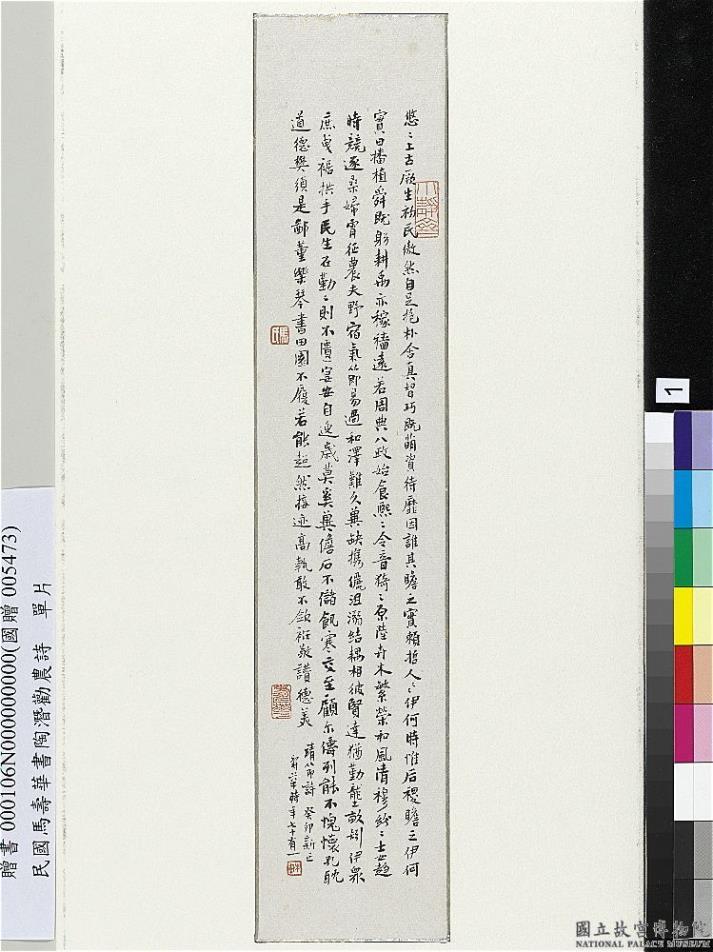 悠〻上古厥生初民傲然自足抱朴含真智巧既萌資待靡因誰其贍之實賴哲人〻伊何時惟后稷贍之伊何
實曰播植舜既躬耕禹亦稼穡遠若周典八政始食熙〻令音猗〻原陸卉木繁榮和風清穆紛〻士女趨
時競逐桑婦宵征農夫野宿氣節易過和澤難久冀缺攜儷沮溺結耦相彼賢達猶勤壟畝矧伊眾
庶曳裾拱手民生在勤〻則不匱宴安自逸歲莫奚冀儋石不儲飢寒交至顧尔儔列能不愧懷孔耽
道德樊須是鄙董樂琴書田園不履若能超然投迹高軌敢不斂衽敬讚德美
靖節詩 癸卯新正
時年七十有一
小靜齋
贈書 000106N000000000(國贈 005473)
民國馬壽華書陶潛勸農詩 單片
1
國立故宮博物院
NATIONAL PALACE MUSEUM